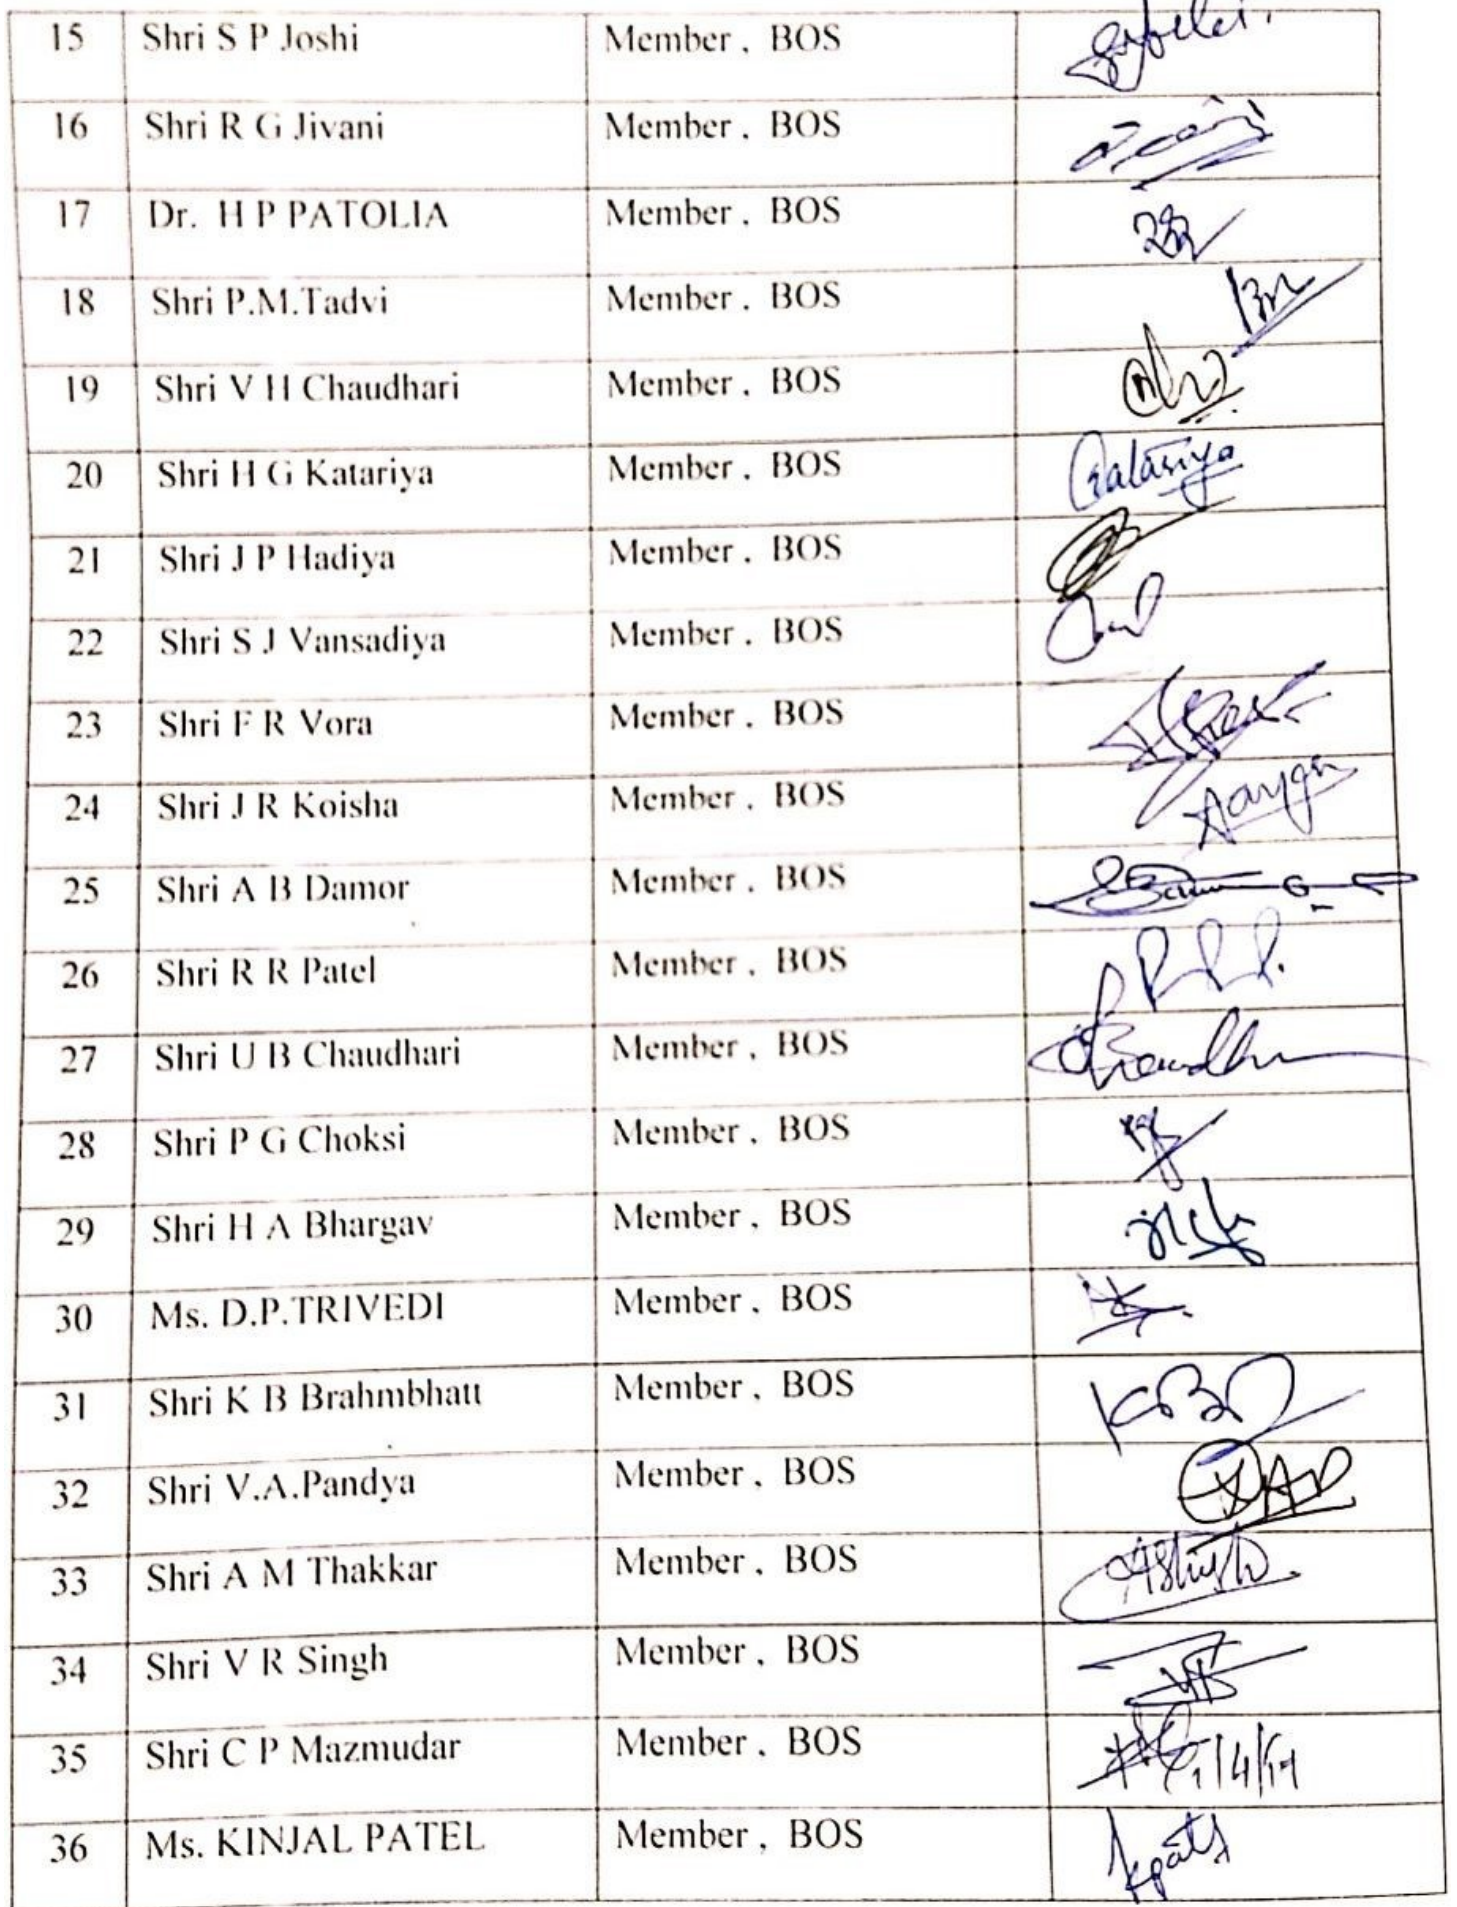 15 Shri S P Joshi Member, BOS
16 Shri R G Jivani Member, BOS
17 Dr. H P PATOLIA Member, BOS
18 Shri P.M.Tadvi Member, BOS
19 Shri V H Chaudhari Member, BOS
20 Shri H G Katariya Member, BOS Katariya
21 Shri J P Hadiya Member, BOS
22 Shri S J Vansadiya Member, BOS
23 Shri F R Vora Member, BOS
24 Shri J R Koisha Member, BOS
25 Shri A B Damor Member, BOS
26 Shri R R Patel Member, BOS
27 Shri U B Chaudhari Member, BOS
28 Shri P G Choksi Member, BOS
29 Shri H A Bhargav Member, BOS
30 Ms. D.P.TRIVEDI Member, BOS
31 Shri K B Brahmbhatt Member, BOS
32 Shri V.A.Pandya Member, BOS
33 Shri A M Thakkar Member, BOS
34 Shri V R Singh Member, BOS
35 Shri C P Mazmudar Member, BOS
36 Ms. KINJAL PATEL Member, BOS